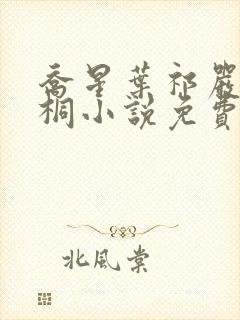 喬星葉祁嚴
桐小說免費
北風棠